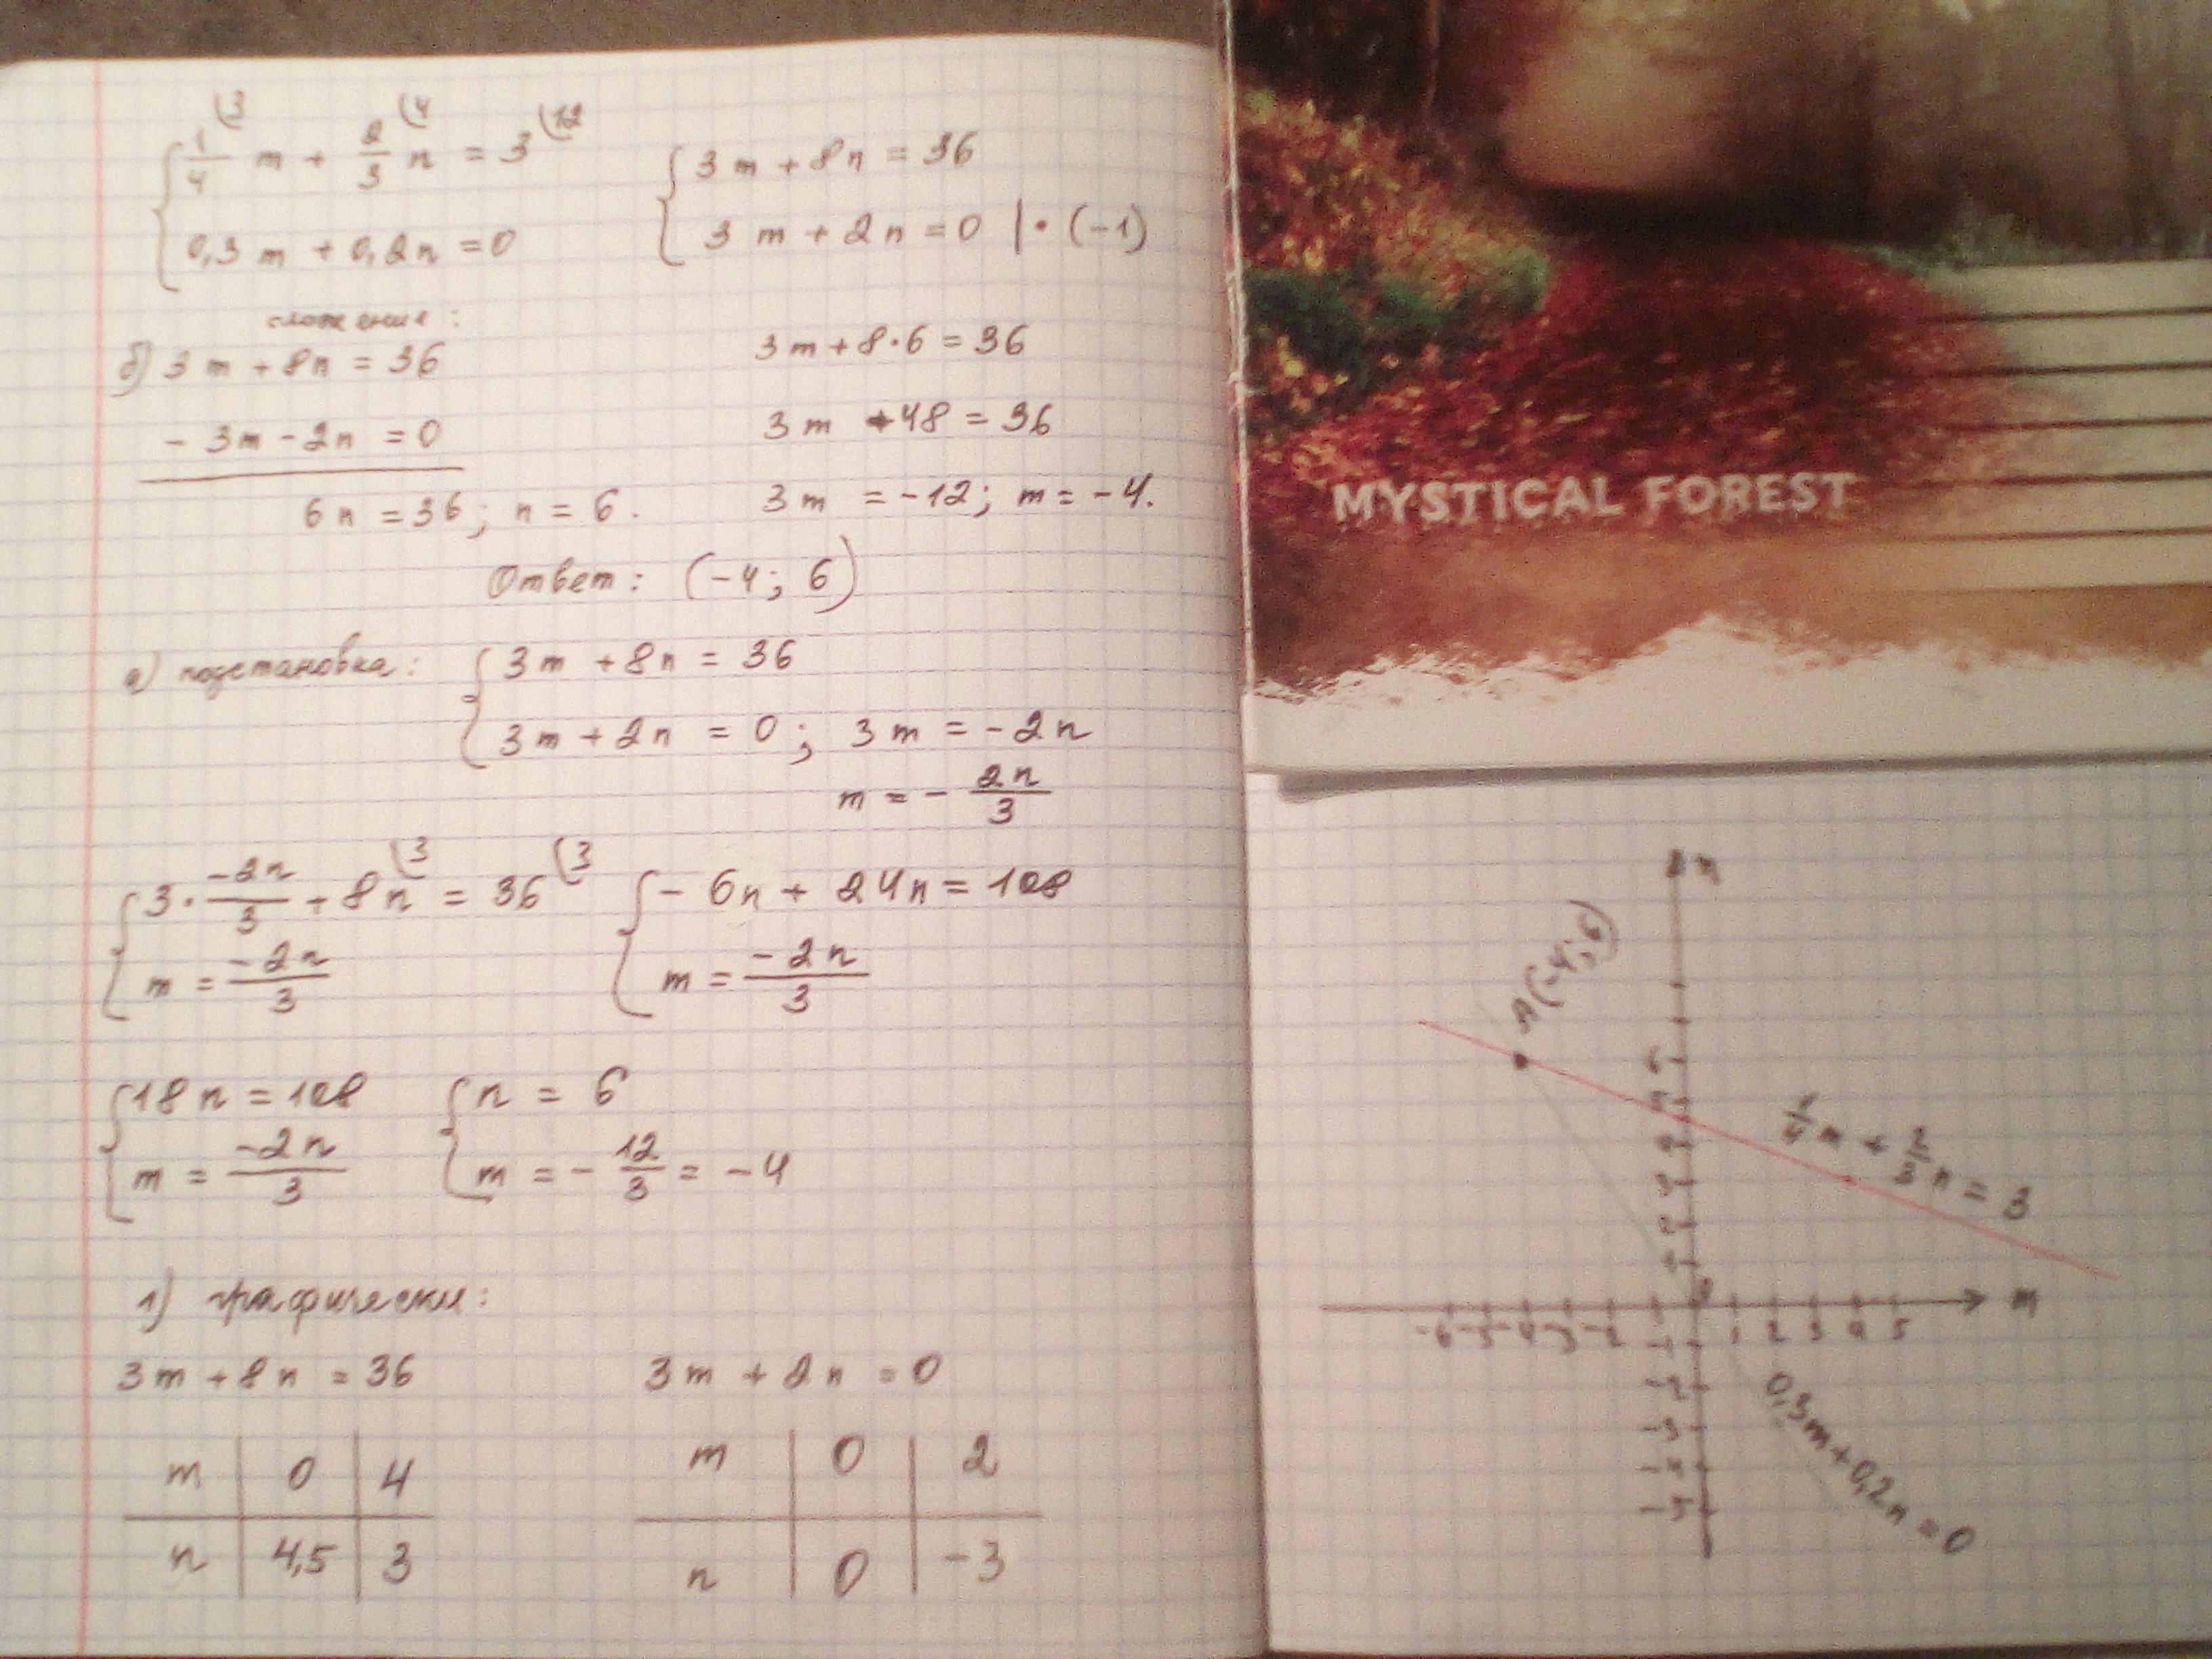 1/4 (3 m + 2/3 (4 n = 3 (12
0,3 m + 0,2 n = 0
3 m + 8 n = 36
3 m + 2 n = 0 | • (-1)
сложение:
б) 3 m + 8 n = 36
- 3 m - 2 n = 0
6 n = 36; n = 6.
3 m + 8 • 6 = 36
3 m + 48 = 36
3 m = -12; m = -4.
Ответ: (-4; 6)
а) подстановка:
3 m + 8 n = 36
3 m + 2 n = 0; 3 m = -2 n
m = - 2n/3
3 • -2n/3 + 8 n (3 = 36 (3
m = -2n/3
- 6 n + 24 n = 108
m = -2n/3
18 n = 108
m = -2n/3
n = 6
m = - 12/3 = -4
1) графически:
3 m + 8 n = 36
m 0 4
n 4,5 3
3 m + 2 n = 0
m 0 2
n 0 -3
MYSTICAL FOREST
n
A (-4; 6)
1/4 m + 2/3 n = 3
m
-6 -5 -4 -3 -2 1 2 3 4 5
-1
-2
-3
-4
-5
0,3 m + 0,2 n = 0